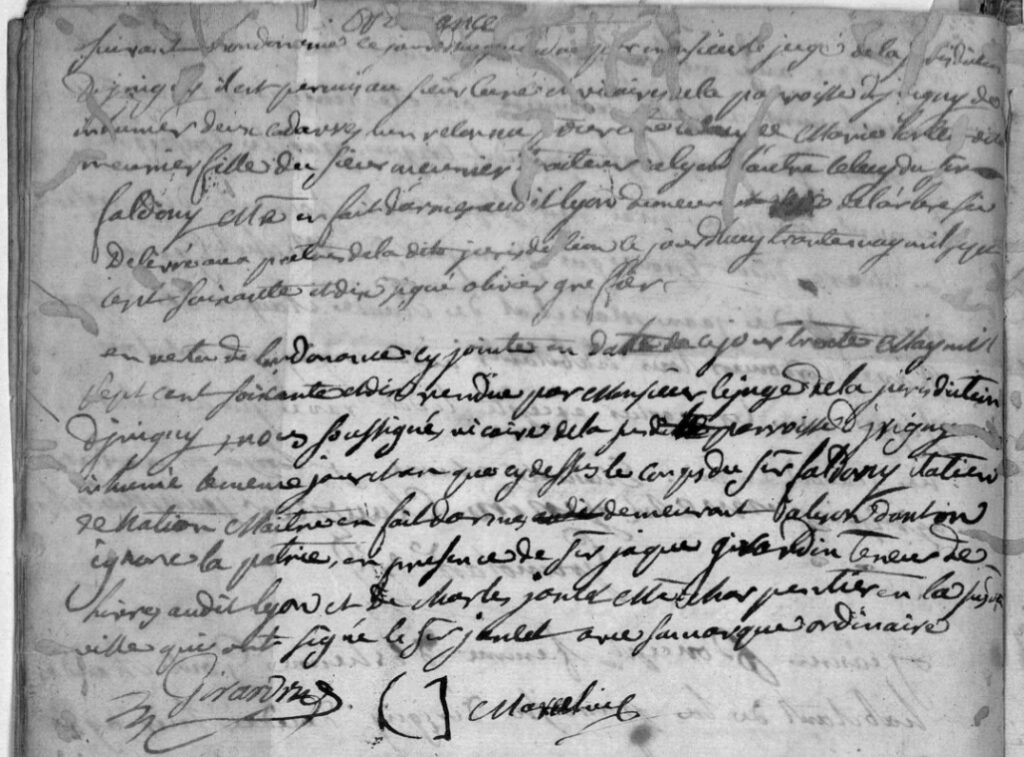 ordonnance
suivant l'ordonnance ce jourdhuy rendue par monsieur le juge de la jurisdiction
d'jrigny il est permis au sieur curé et vicaires de la parroisse d'jrigny de
inhumer deux cadavres l'un de Marie
meunier fille du sieur meunier traiteur a lyon l'autre celuy du sr
faldony Me en fait d'armes audit lyon demeurant de l'arbre sec
de la dite jurisdiction le jourdhuy trente may mil sept
cent soixante et dix signé olivier greffier
en vertu de l'ordonnance cy jointe en datte de ce jour trente May mil
sept cent soixante et dix rendue par Monsieur le juge de la jurisdiction
d'jrigny, nous soussignés vicaire de la susdite parroisse d'jrigny
inhumé le meme jour et an que cy dessus le corps du Sr faldony italien
de Nation Maitre en fait d'armes demeurant a lion dont on
ignore la patrie, en presence de Sr jaque girardin teneur de
livres audit lyon et de Charles joulet Me charpentier en la susdite
ville qui ont signé le Sr joulet avec sa marque ordinaire
Girardin